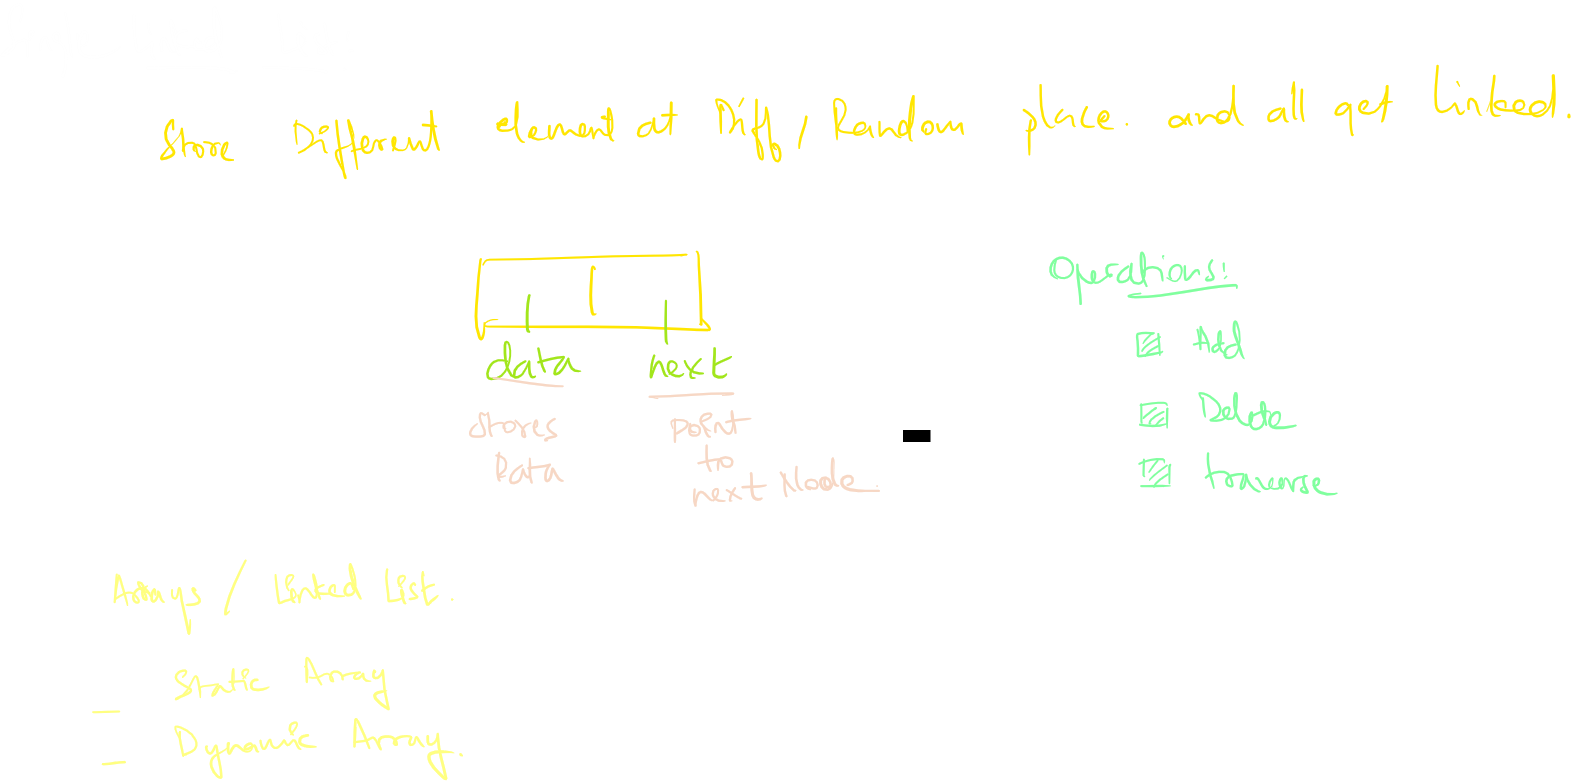 Store Different element at Diff, Random place. and all get Linked.
data next
Stores Data
point to next Node.
Operations:
Add
Delete
traverse
Arrays / Linked List.
- Static Array
- Dynamic Array.